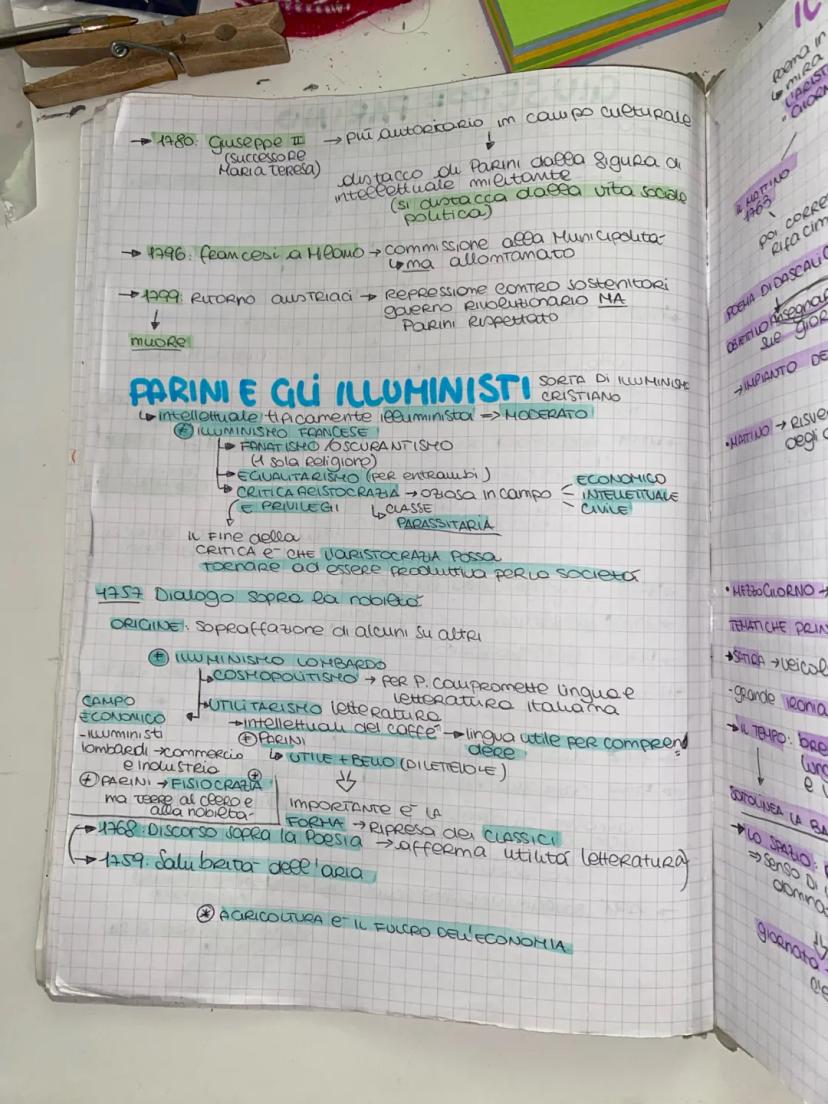 → 1780: Giuseppe II → più autoritario in campo culturale
(successore
Maria Teresa)
↓
distacco di Parini dalla figura di
intellettuale militante
(si distacca dalla vita sociale
politica)
→ 1796: francesi a Milano → commissione alla Municipalità
↳ ma allontanato
→ 1799: ritorno austriaci → repressione contro sostenitori
governo rivoluzionario MA
Parini rispettato
↓
muore
PARINI E GLI ILLUMINISTI SORTA DI ILLUMINISMO
CRISTIANO
↳ intellettuale tipicamente illuminista => MODERATO
≠ ILLUMINISMO FRANCESE
↳ FANATISMO/OSCURANTISMO
(1 sola religione)
→ EGUALITARISMO (per entrambi)
→ CRITICA ARISTOCRAZIA → oziosa in campo
E PRIVILEGI
ECONOMICO
INTELLETTUALE
CIVILE
↳ CLASSE
PARASSITARIA
IL Fine della
CRITICA è CHE L'ARISTOCRAZIA POSSA
TORNARE ad essere produttiva per la società
1757 Dialogo sopra la nobiltà
ORIGINE: sopraffazione di alcuni su altri
≠ ILLUMINISMO LOMBARDO
↳ COSMOPOLITISMO → per P. compromette lingua e
letteratura italiana
→ UTILITARISMO letteratura
→ intellettuali del caffè → lingua utile per compren
dere
≠ PARINI
↳ UTILE + BELLO (DILETEVOLE)
⇓
IMPORTANTE è LA
FORMA → ripresa dei CLASSICI
CAMPO
ECONOMICO
- illuministi
lombardi → commercio
e industria
≠ PARINI → FISIOCRAZIA ⊛
ma terre al clero e
alla nobiltà
→ 1768: Discorso sopra la Poesia → afferma utilità letteratura
→ 1759: Salubrità dell'aria
⊛ AGRICOLTURA è IL FULCRO DELL'ECONOMIA
poema in
↳ mira
L'ARIST
IL MATTINO
1763
poi corre
rifacim
POEMA DIDASCALIC
OBIETTIVO insegna
sue gior
→ IMPIANTO DE
• MATTINO → risve
degli
• MEZZOGIORNO →
TEMATICHE PRIN
→ SATIRA → veicol
- grande ironia
→ IL TEMPO: bre
SOTTOLINEA LA BA
→ LO SPAZIO:
⇒ senso di
domina
giornata